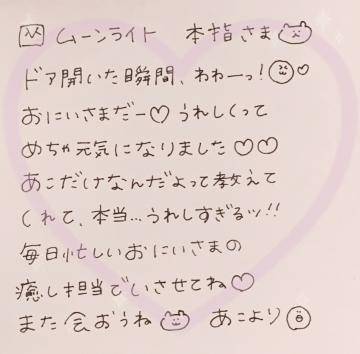 ムーンライト 本指さま
ドア開いた瞬間、わわーっ!♡
おにいさまだー♡ うれしくって
めちゃ元気になりました♡♡
あこだけなんだよって教えて
くれて、本当...うれしすぎるッ!!
毎日忙しいおにいさまの
癒し担当でいさせてね♡
また会おうね あこより